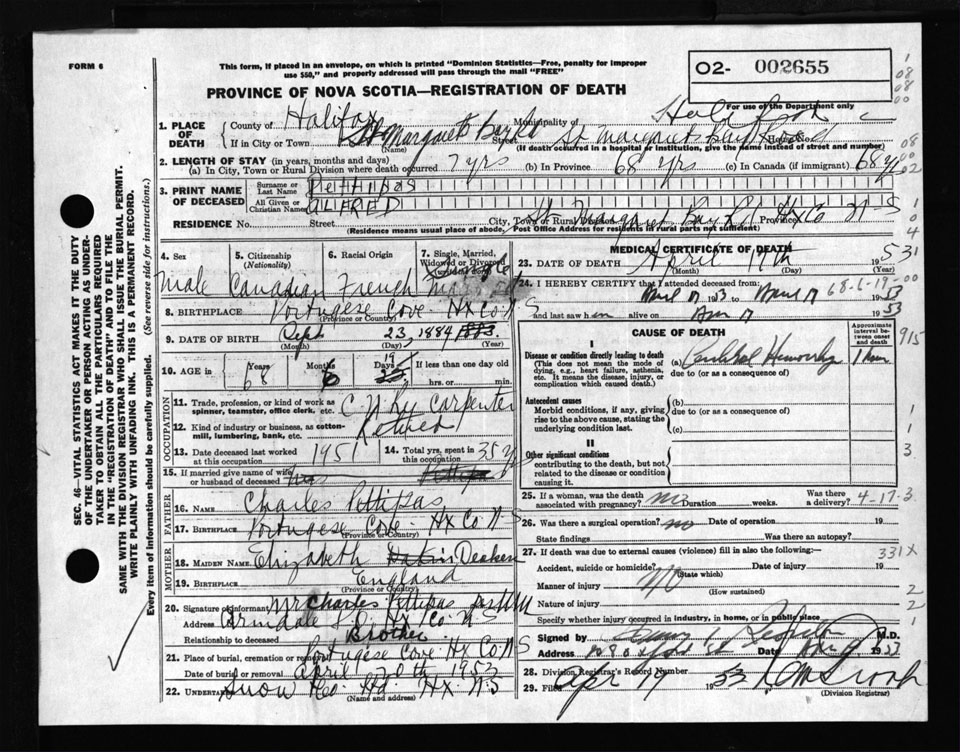 FORM 6
This form, if placed in an envelope, on which is printed "Dominion Statistics—Free, penalty for improper
use $50," and properly addressed will pass through the mail "FREE"
O2- 002655
PROVINCE OF NOVA SCOTIA—REGISTRATION OF DEATH
For use of the Department only
1. PLACE OF DEATH
County of Halifax Municipality of Halifax
If in City or Town St Margarets Street St Margarets Bay Road House No.
(Name) (If death occurred in a hospital or institution, give the name instead of street and number)
2. LENGTH OF STAY (in years, months and days)
(a) In City, Town or Rural Division where death occurred 7 yrs (b) In Province 68 yrs (c) In Canada (if immigrant) 68 yrs
3. PRINT NAME OF DECEASED
Surname or Last Name PETTIPAS
All Given or Christian Names ALFRED
RESIDENCE No. Street City, Town or Rural Division St Margaret Bay Rd Hx Co Province N S
(Residence means usual place of abode, Post Office Address for residents in rural parts not sufficient)
4. Sex Male
5. Citizenship (Nationality) Canadian
6. Racial Origin French
7. Single, Married, Widowed or Divorced
8. BIRTHPLACE Portugese Cove Hx Co N S
(Province or Country)
9. DATE OF BIRTH Sept 23, 1884
(Month) (Day) (Year)
10. AGE in Years 68 Months 6 Days If less than one day
hrs. or min.
OCCUPATION
11. Trade, profession, or kind of work as spinner, teamster, office clerk, etc. C.N.Ry Carpenter
12. Kind of industry or business, as cotton-mill, lumbering, bank, etc. Retired
13. Date deceased last worked at this occupation 1951
14. Total yrs. spent in this occupation 35 y
15. If married give name of wife or husband of deceased
FATHER
16. NAME Charles Pettipas
17. BIRTHPLACE Portugese Cove Hx Co N-S
(Province or Country)
MOTHER
18. MAIDEN NAME Elizabeth
19. BIRTHPLACE England
(Province or Country)
20. Signature of informant Mr Charles Pettipas
Address Armdale Hx Co N-S
Relationship to deceased Brother
21. Place of burial, cremation or removal Portugese Cove Hx Co N S
Date of burial or removal April 20th 1953
22. Undertaker Snow & Co. Ltd. Hx N S
(Name and address)
SEC. 46—VITAL STATISTICS ACT MAKES IT THE DUTY
OF THE UNDERTAKER OR PERSON ACTING AS UNDER-
TAKER TO OBTAIN ALL THE PARTICULARS REQUIRED
IN THE "REGISTRATION OF DEATH" AND TO FILE THE
SAME WITH THE DIVISION REGISTRAR WHO SHALL ISSUE THE BURIAL PERMIT.
WRITE PLAINLY WITH UNFADING INK. THIS IS A PERMANENT RECORD.
Every item of information should be carefully supplied. (See reverse side for instructions.)
MEDICAL CERTIFICATE OF DEATH
23. DATE OF DEATH April 17th 1953
(Month) (Day) (Year)
24. I HEREBY CERTIFY that I attended deceased from: April 17 1953 to April 17 1953
and last saw h er alive on Apr 17 1953
68-6-19
CAUSE OF DEATH
Approximate interval between onset and death
I
Disease or condition directly leading to death
(This does not mean the mode of dying, e.g., heart failure, asthenia, etc. It means the disease, injury, or complication which caused death.)
(a) Cerebral Hemorrhage 1 hour
due to (or as a consequence of)
Antecedent causes
Morbid conditions, if any, giving rise to the above cause, stating the underlying condition last.
(b)
due to (or as a consequence of)
(c)
II
Other significant conditions
contributing to the death, but not related to the disease or condition causing it
25. If a woman, was the death associated with pregnancy? no Duration weeks. Was there a delivery?
4-17-3
26. Was there a surgical operation? no Date of operation 19
State findings Was there an autopsy?
27. If death was due to external causes (violence) fill in also the following:—
331X
Accident, suicide or homicide? Date of injury 19
(State which)
Manner of injury No
(How sustained)
Nature of injury
Specify whether injury occurred in industry, in home, or in public place
Signed by M.D.
Address Date 19
28. Division Registrar's Record Number
29. Filed Apr 19 1953
(Division Registrar)